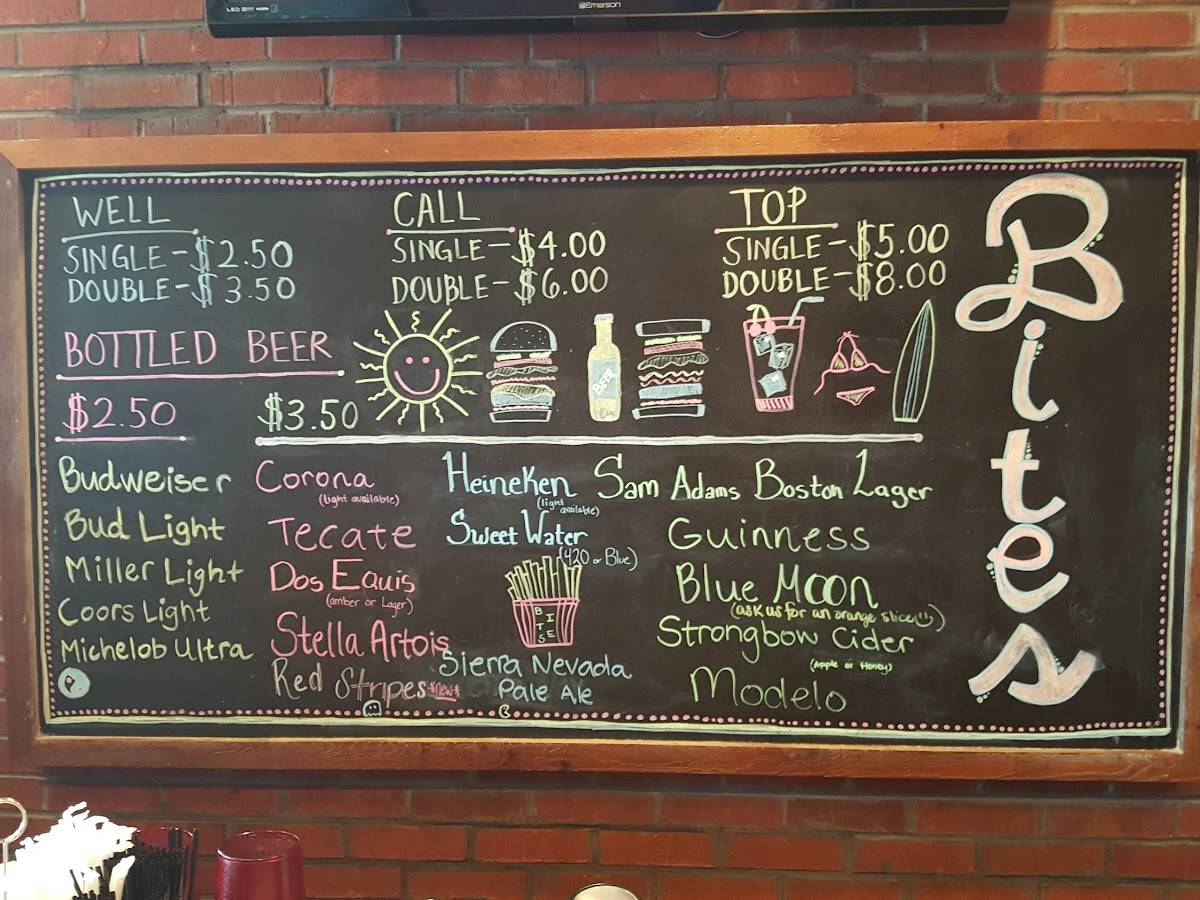 Emerson
WELL
SINGLE - $2.50
DOUBLE - $3.50
CALL
SINGLE - $4.00
DOUBLE - $6.00
TOP
SINGLE - $5.00
DOUBLE - $8.00
Bites
BOTTLED BEER
BEER
$2.50
Budweiser
Bud Light
Miller Light
Coors Light
Michelob Ultra
$3.50
Corona
(light available)
Tecate
Dos Equis
(amber or Lager)
Stella Artois
Red Stripes *new*
Heineken
(light available)
Sweet Water
(420 or Blue)
BITES
Sierra Nevada
Pale Ale
Sam Adams Boston Lager
Guinness
Blue Moon
(ask us for an orange slice)
Strongbow Cider
(Apple or Honey)
Modelo